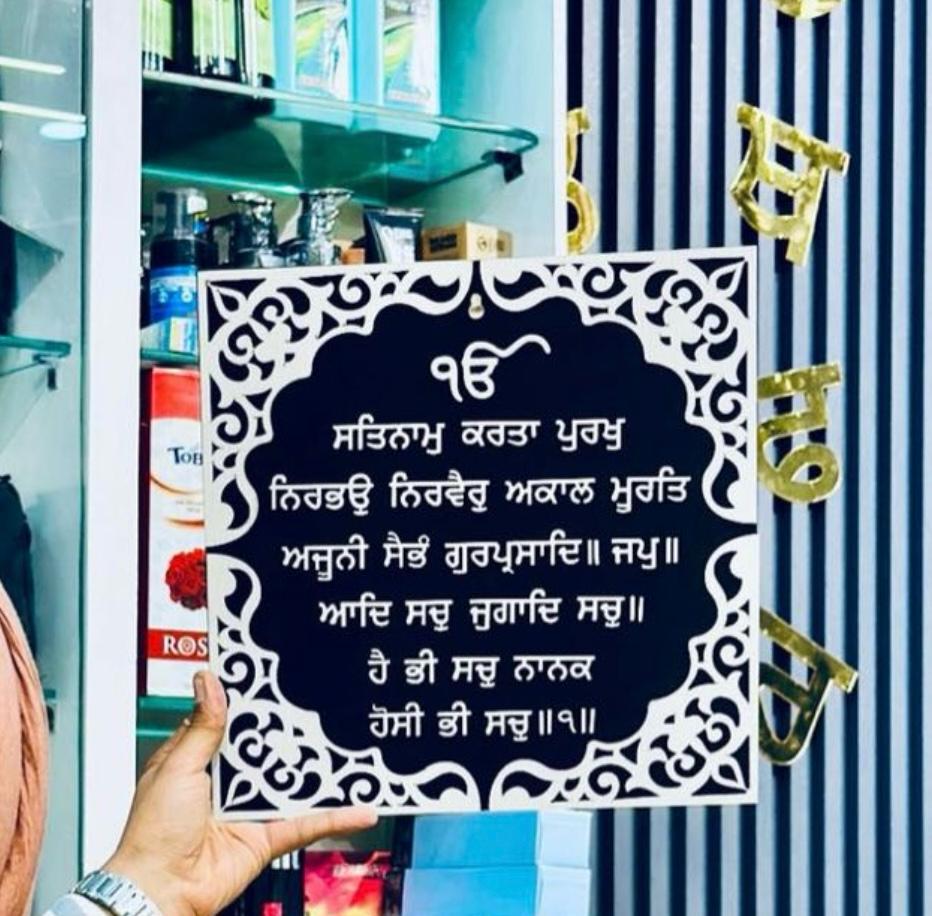 ੴ
ਸਤਿਨਾਮੁ ਕਰਤਾ ਪੁਰਖੁ
ਨਿਰਭਉ ਨਿਰਵੈਰੁ ਅਕਾਲ ਮੂਰਤਿ
ਅਜੂਨੀ ਸੈਭੰ ਗੁਰਪ੍ਰਸਾਦਿ॥ ਜਪੁ॥
ਆਦਿ ਸਚੁ ਜੁਗਾਦਿ ਸਚੁ॥
ਹੈ ਭੀ ਸਚੁ ਨਾਨਕ
ਹੋਸੀ ਭੀ ਸਚੁ॥੧॥